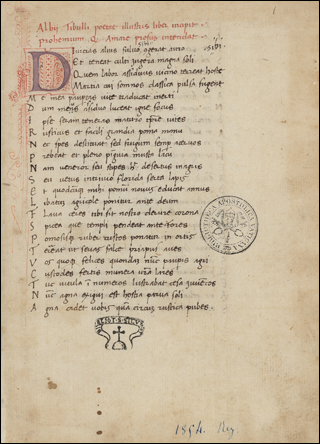 Albij Tibulli poetae illustris liber incipit
prohemium Q. Amare prossus intendat
Divitias alius fulvo sibi
Et teneat culti iugera magna soli
Quem labor assiduus vicino terreat hoste
Martia cui somnos classica pulsa fugent
Me mea paupertas vite traducat inerti
Dum meus assiduo luceat igne focus
Ipse seram teneras maturo tempore vites
Rusticus et facili grandia poma manu
Nec spes destituat sed frugum semper acervos
Prebeat et pleno pinguia musta lacu
Nam veneror seu stipes habet desertus in agris
Seu vetus in trivio florida serta lapis
Et quodcunque mihi pomum novus educat annus
Libatum agricole ponitur ante deum
Flava ceres tibi sit nostro de rure corona
Spicea que templi pendeat ante fores
Pomosisque ruber custos ponatur in ortis
Terreat ut seva falce priapus aves
Vos quoque felices quondam nunc pauperis agri
Custodes fertis munera vestra lares
Tunc vitula innumeros lustrabat cesa iuvencos
Nunc agna exigui est hostia parva soli
Agna cadet vobis quam circum rustica pubes
BIBLIOTECA APOSTOLICA VATICANA
1854. Reg